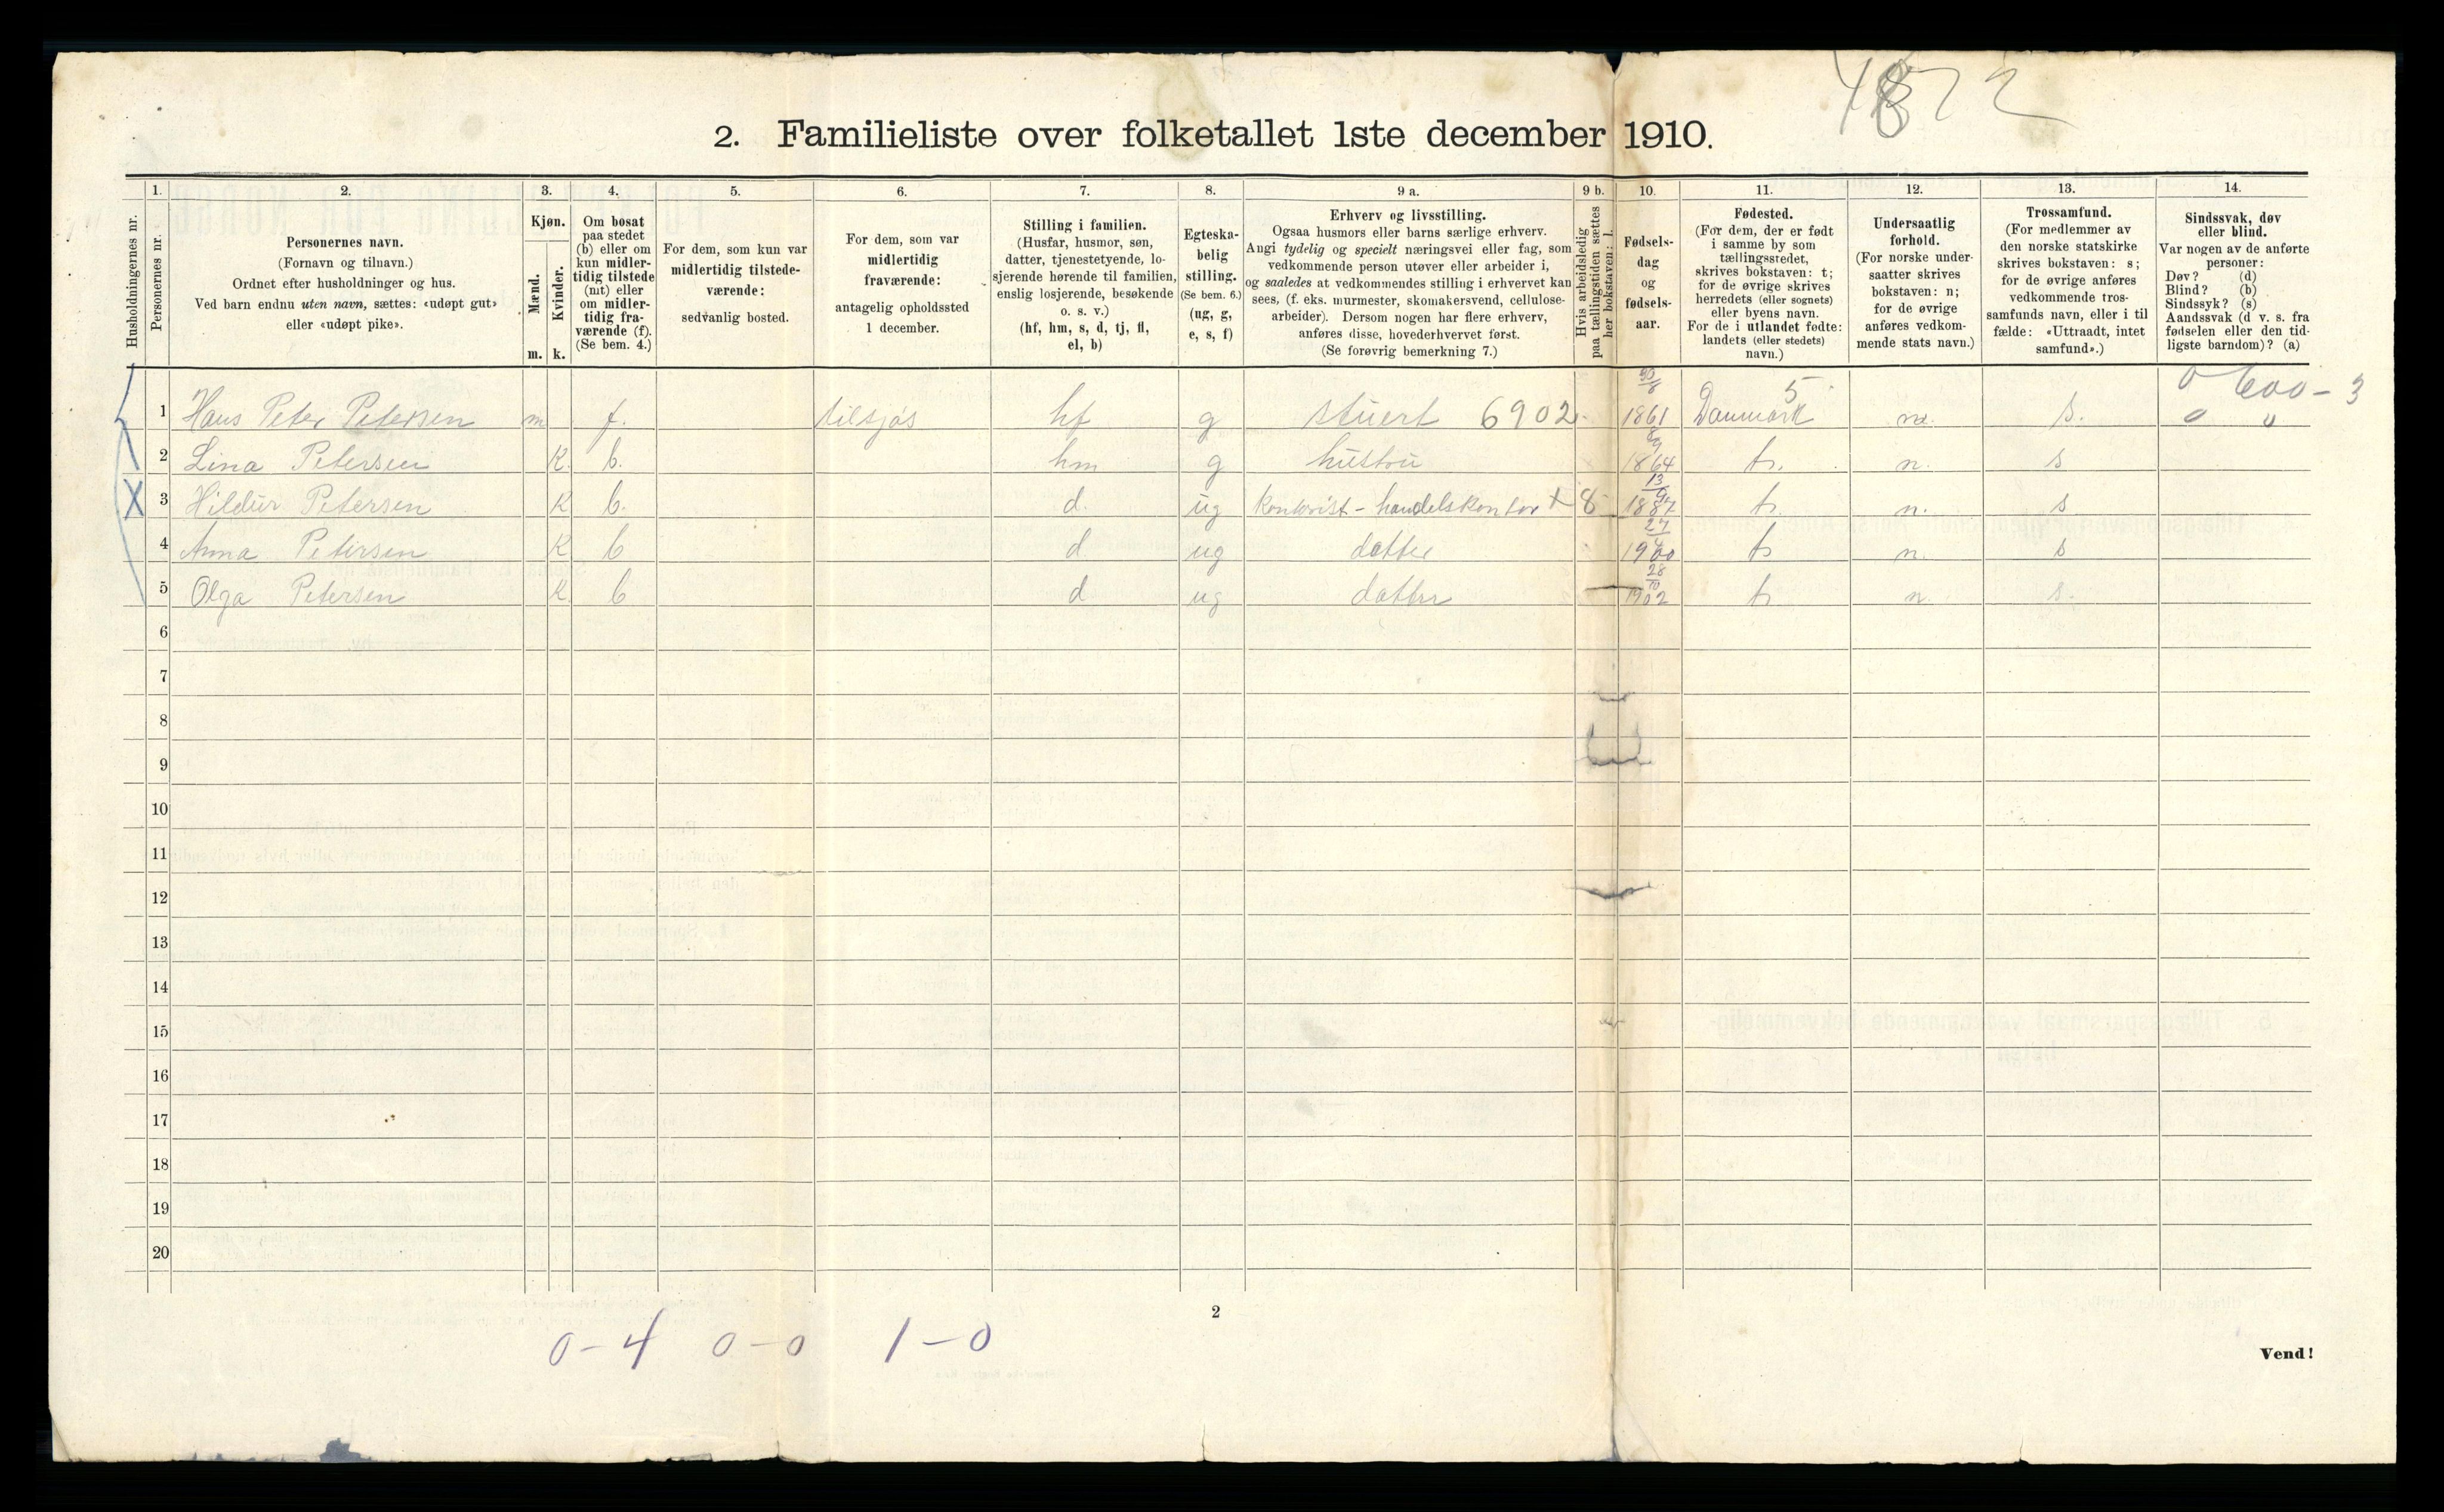 4872
2. Familieliste over folketallet 1ste december 1910.
Husholdningernes nr.
1.
Personernes nr.
2.
Personernes navn.
(Fornavn og tilnavn.)
Ordnet efter husholdninger og hus.
Ved barn endnu uten navn, sættes: «udøpt gut»
eller «udøpt pike».
3.
Kjøn.
Mænd.
m.
Kvinder.
k.
4.
Om bosat
paa stedet
(b) eller om
kun midler-
tidig tilstede
(mt) eller
om midler-
tidig fra-
værende (f).
(Se bem. 4.)
5.
For dem, som kun var
midlertidig tilstede-
værende:
sedvanlig bosted.
6.
For dem, som var
midlertidig
fraværende:
antagelig opholdssted
1 december.
7.
Stilling i familien.
(Husfar, husmor, søn,
datter, tjenestetyende, lo-
sjerende hørende til familien,
enslig losjerende, besøkende
o. s. v.)
(hf, hm, s, d, tj, fl,
el, b)
8.
Egteska-
belig
stilling.
(Se bem. 6.)
(ug, g,
e, s, f)
9 a.
Erhverv og livsstilling.
Ogsaa husmors eller barns særlige erhverv.
Angi tydelig og specielt næringsvei eller fag, som
vedkommende person utøver eller arbeider i,
og saaledes at vedkommendes stilling i erhvervet kan
sees, (f. eks. murmester, skomakersvend, cellulose-
arbeider). Dersom nogen har flere erhverv,
anføres disse, hovederhvervet først.
(Se forøvrig bemerkning 7.)
9 b.
Hvis arbeidsledig
paa tællingstiden sættes
her bokstaven: l.
10.
Fødsels-
dag
og
fødsels-
aar.
11.
Fødested.
(For dem, der er født
i samme by som
tællingsstedet,
skrives bokstaven: t;
for de øvrige skrives
herredets (eller sognets)
eller byens navn.
For de i utlandet fødte:
landets (eller stedets)
navn.)
12.
Undersaatlig
forhold.
(For norske under-
saatter skrives
bokstaven: n;
for de øvrige
anføres vedkom-
mende stats navn.)
13.
Trossamfund.
(For medlemmer av
den norske statskirke
skrives bokstaven: s;
for de øvrige anføres
vedkommende tros-
samfunds navn, eller i til
fælde: «Uttraadt, intet
samfund».)
14.
Sindssvak, døv
eller blind.
Var nogen av de anførte
personer:
Døv? (d)
Blind? (b)
Sindssyk? (s)
Aandssvak (d. v. s. fra
fødselen eller den tid-
ligste barndom)? (a)
1 Hans Peter Petersen m f. tilsjøs hf g stuert 6902 1861 Danmark 5 n. s. 0 0
0 600-3
2 Lina Petersen K b. hm g hustru 1864 t. n. s
3 Hildur Petersen K b. d. ug kontorist - handelskontor + 8 13/9 1887 t. n. s
4 Anna Petersen K b d ug datter 1900 t n. s
5 Olga Petersen K b d ug datter 28/10 1902 t n. s.
6
7
8
9
10
11
12
13
14
15
16
17
18
19
20
2
0-4 0-0 1-0
Vend!